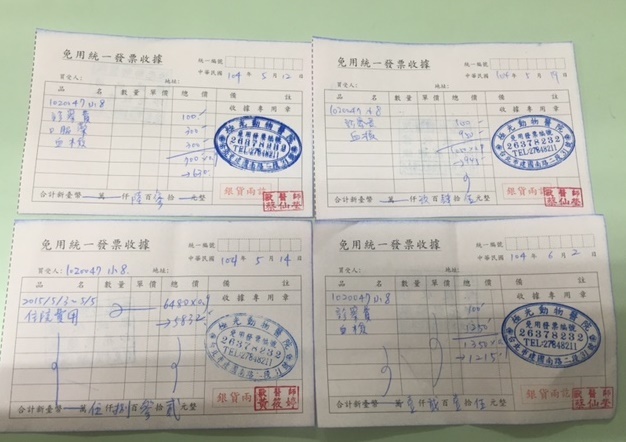 免用統一發票收據
統一編號
中華民國 104 年 5 月 12 日
買受人: 地址:
品名 數量 單價 總價 備註
收據專用章
1020047 小8
100
300
300
700×0.9
→630
免用發票編號
26378232
TEL:27848211
合計新臺幣 萬 仟 陸 佰 參 拾 元整
銀貨兩訖
醫師
蔡仙瑩
免用統一發票收據
統一編號
中華民國 104 年 5 月 日
買受人: 地址:
品名 數量 單價 總價 備註
收據專用章
1020047 小8
血檢
免用發票編號
26378232
TEL:27848211
合計新臺幣 萬 仟 玖 佰 肆 拾 元整
銀貨兩訖
醫師
蔡仙瑩
免用統一發票收據
統一編號
中華民國 104 年 5 月 14 日
買受人: 1020047 小8. 地址:
品名 數量 單價 總價 備註
收據專用章
2015/5/3~5/5
6480×0.9
住院費用
→5832
柚元動物醫院
免用發票編號
26378232
TEL:27848211
合計新臺幣 萬 伍 仟 捌 佰 參 拾 貳 元整
銀貨兩訖
醫師
黃筱婷
免用統一發票收據
統一編號
中華民國 104 年 6 月 2 日
買受人: 地址:
品名 數量 單價 總價 備註
收據專用章
1020047 小8
診察費 100
血檢 1250
1350×0.9
→1215
免用發票編號
26378232
TEL:27848211
合計新臺幣 萬 壹 仟 貳 佰 壹 拾 伍 元整
銀貨兩訖
醫師
蔡仙瑩